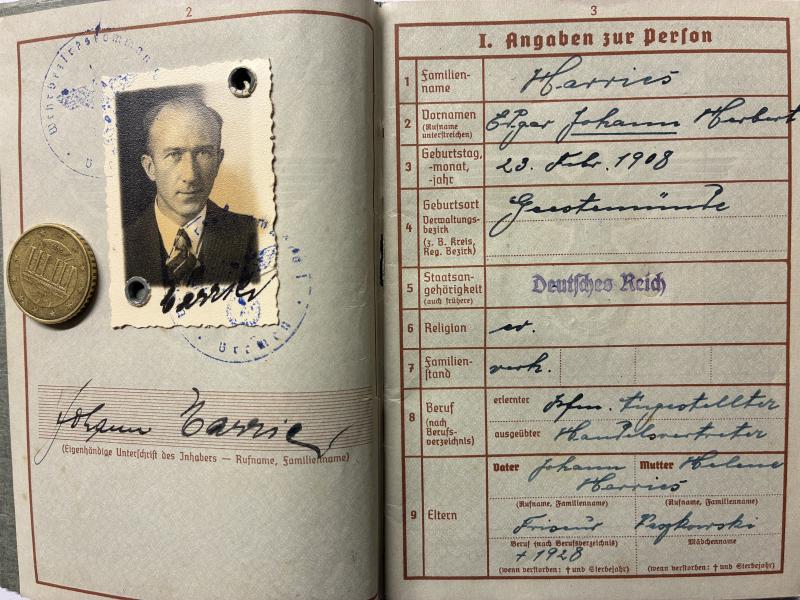 2
Wehrbezirkskomman
Harries
Bremen
Johann Harries
(Eigenhändige Unterschrift des Inhabers — Rufname, Familienname)
3
I. Angaben zur Person
1 Familien-
name
Harries
2 Vornamen
(Rufname
unterstreichen)
Johann Herbert
3 Geburtstag,
-monat,
-jahr
23. Febr. 1908
4 Geburtsort
Verwaltungs-
bezirk
(z. B. Kreis,
Reg. Bezirk)
Geestemünde
5 Staatsan-
gehörigkeit
(auch frühere)
Deutsches Reich
6 Religion
ev.
7 Familien-
stand
verh.
8 Beruf
(nach
Berufs-
verzeichnis)
erlernter
Kfm. Angestellter
ausgeübter
Handelsvertreter
9 Eltern
Vater Johann
Harries
Mutter Helene
(Rufname, Familienname)
(Rufname, Familienname)
Friseur
Beruf (nach Berufsverzeichnis)
Mädchenname
† 1928
(wenn verstorben: † und Sterbejahr)
(wenn verstorben: † und Sterbejahr)